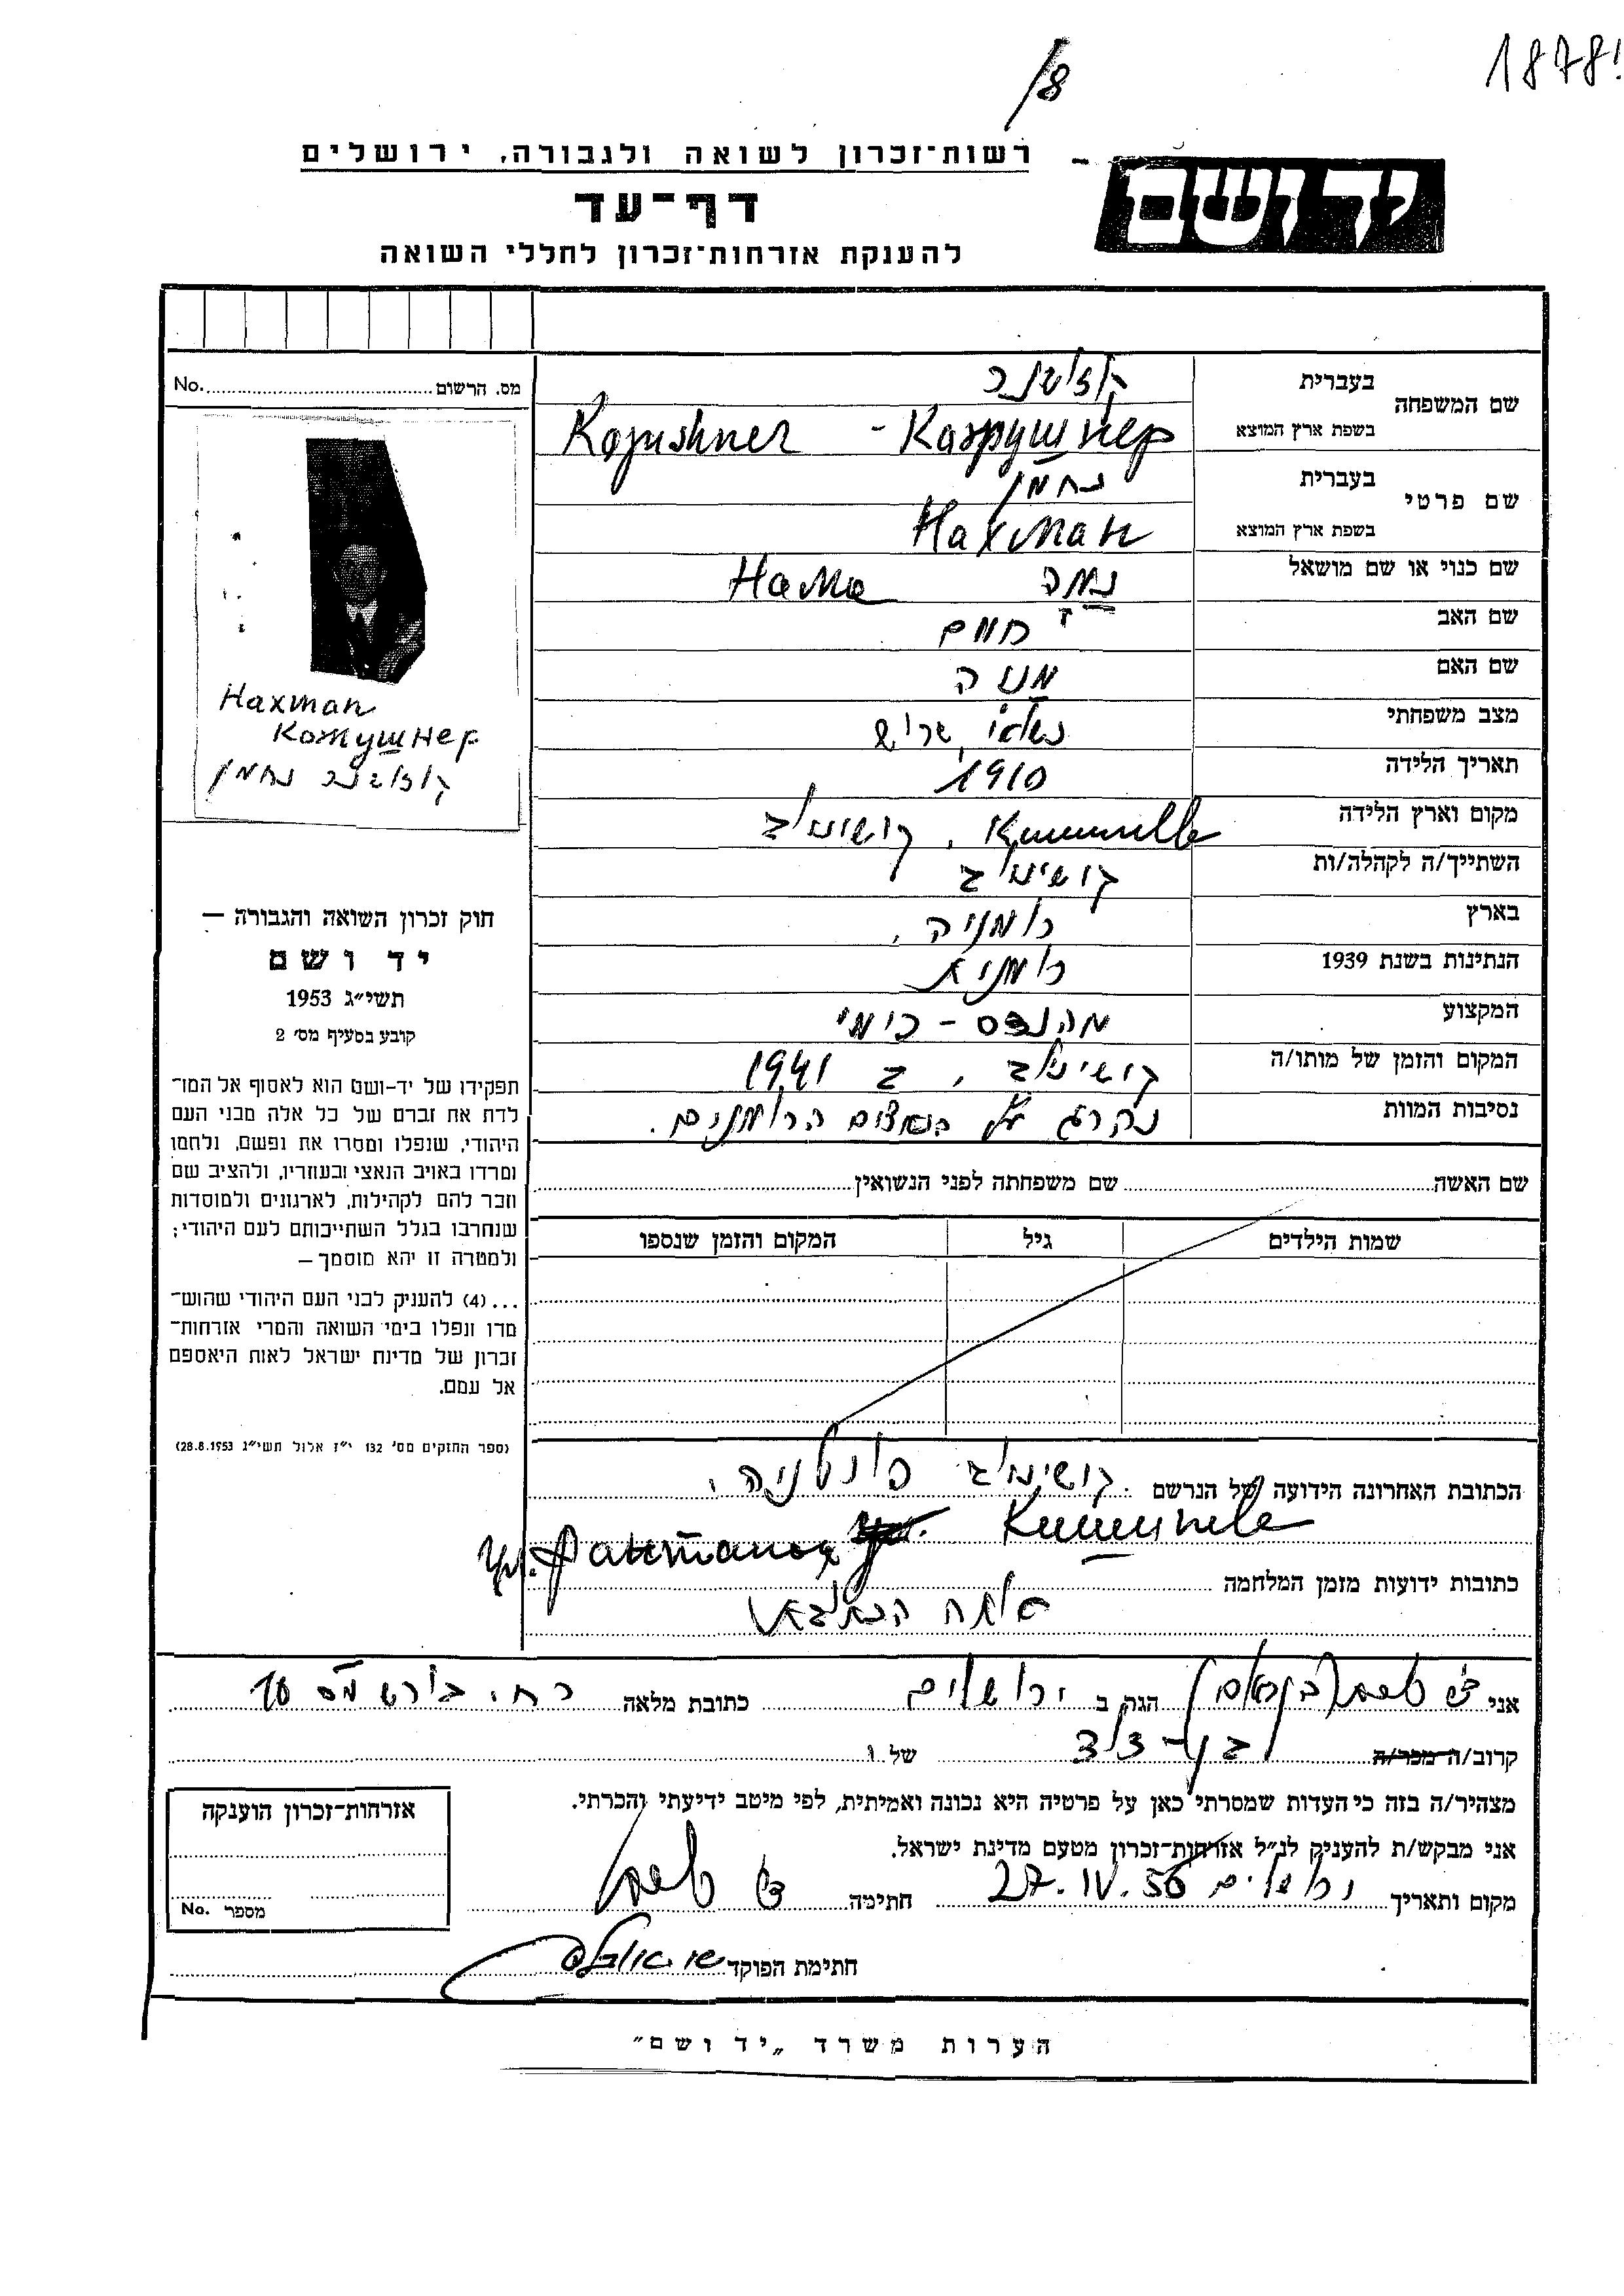 18
1878
רשות־זכרון לשואה ולגבורה, ירושלים
יד ושם
דף־עד
להענקת אזרחות־זכרון לחללי השואה
מס. הרשום No.
שם המשפחה
בעברית קוז'ושנר
בשפת ארץ המוצא Kojushner -
שם פרטי
בעברית נחמן
בשפת ארץ המוצא Нахман
שם כנוי או שם מושאל נחמה Нама
שם האב חיים
שם האם
מצב משפחתי נשוי
תאריך הלידה 1910
מקום וארץ הלידה קושינוב
השתייך/ה לקהלה/ות קושינוב
בארץ רומניה
הנתינות בשנת 1939 רומנית
המקצוע מהנדס - כימי
המקום והזמן של מותו/ה קושינוב, ב 1941
נסיבות המוות נהרג על הרומנים.
Нахман
Кожушнер
קוז'ושנר נחמן
חוק זכרון השואה והגבורה —
יד ושם
תשי״ג 1953
קובע בסעיף מס׳ 2
תפקידו של יד-ושם הוא לאסוף אל המו־
לדת את זכרם של כל אלה מבני העם
היהודי, שנפלו ומסרו את נפשם, נלחמו
ומרדו באויב הנאצי ובעוזריו, ולהציב שם
וזכר להם לקהילות, לארגונים ולמוסדות
שנחרבו בגלל השתייכותם לעם היהודי;
ולמטרה זו יהא מוסמך —
...(4) להעניק לבני העם היהודי שהוש־
מדו ונפלו בימי השואה והמרי אזרחות־
זכרון של מדינת ישראל לאות היאספם
אל עמם.
(ספר החוקים מס׳ 132 י״ז אלול תשי״ג 28.8.1953)
שם האשה שם משפחתה לפני הנשואין
שמות הילדים גיל המקום והזמן שנספו
הכתובת האחרונה הידועה של הנרשם קושינוב
כתובות ידועות מזמן המלחמה
אני הגר ב ירושלים כתובת מלאה רח. 10
קרוב/ה מכר/ה בן-דוד של
מצהיר/ה בזה כי העדות שמסרתי כאן על פרטיה היא נכונה ואמיתית, לפי מיטב ידיעתי והכרתי.
אני מבקש/ת להעניק לנ״ל אזרחות־זכרון מטעם מדינת ישראל.
מקום ותאריך ירושלים 27.IV.56 חתימה
חתימת הפוקד
אזרחות־זכרון הוענקה
מספר No.
הערות משרד „יד ושם״